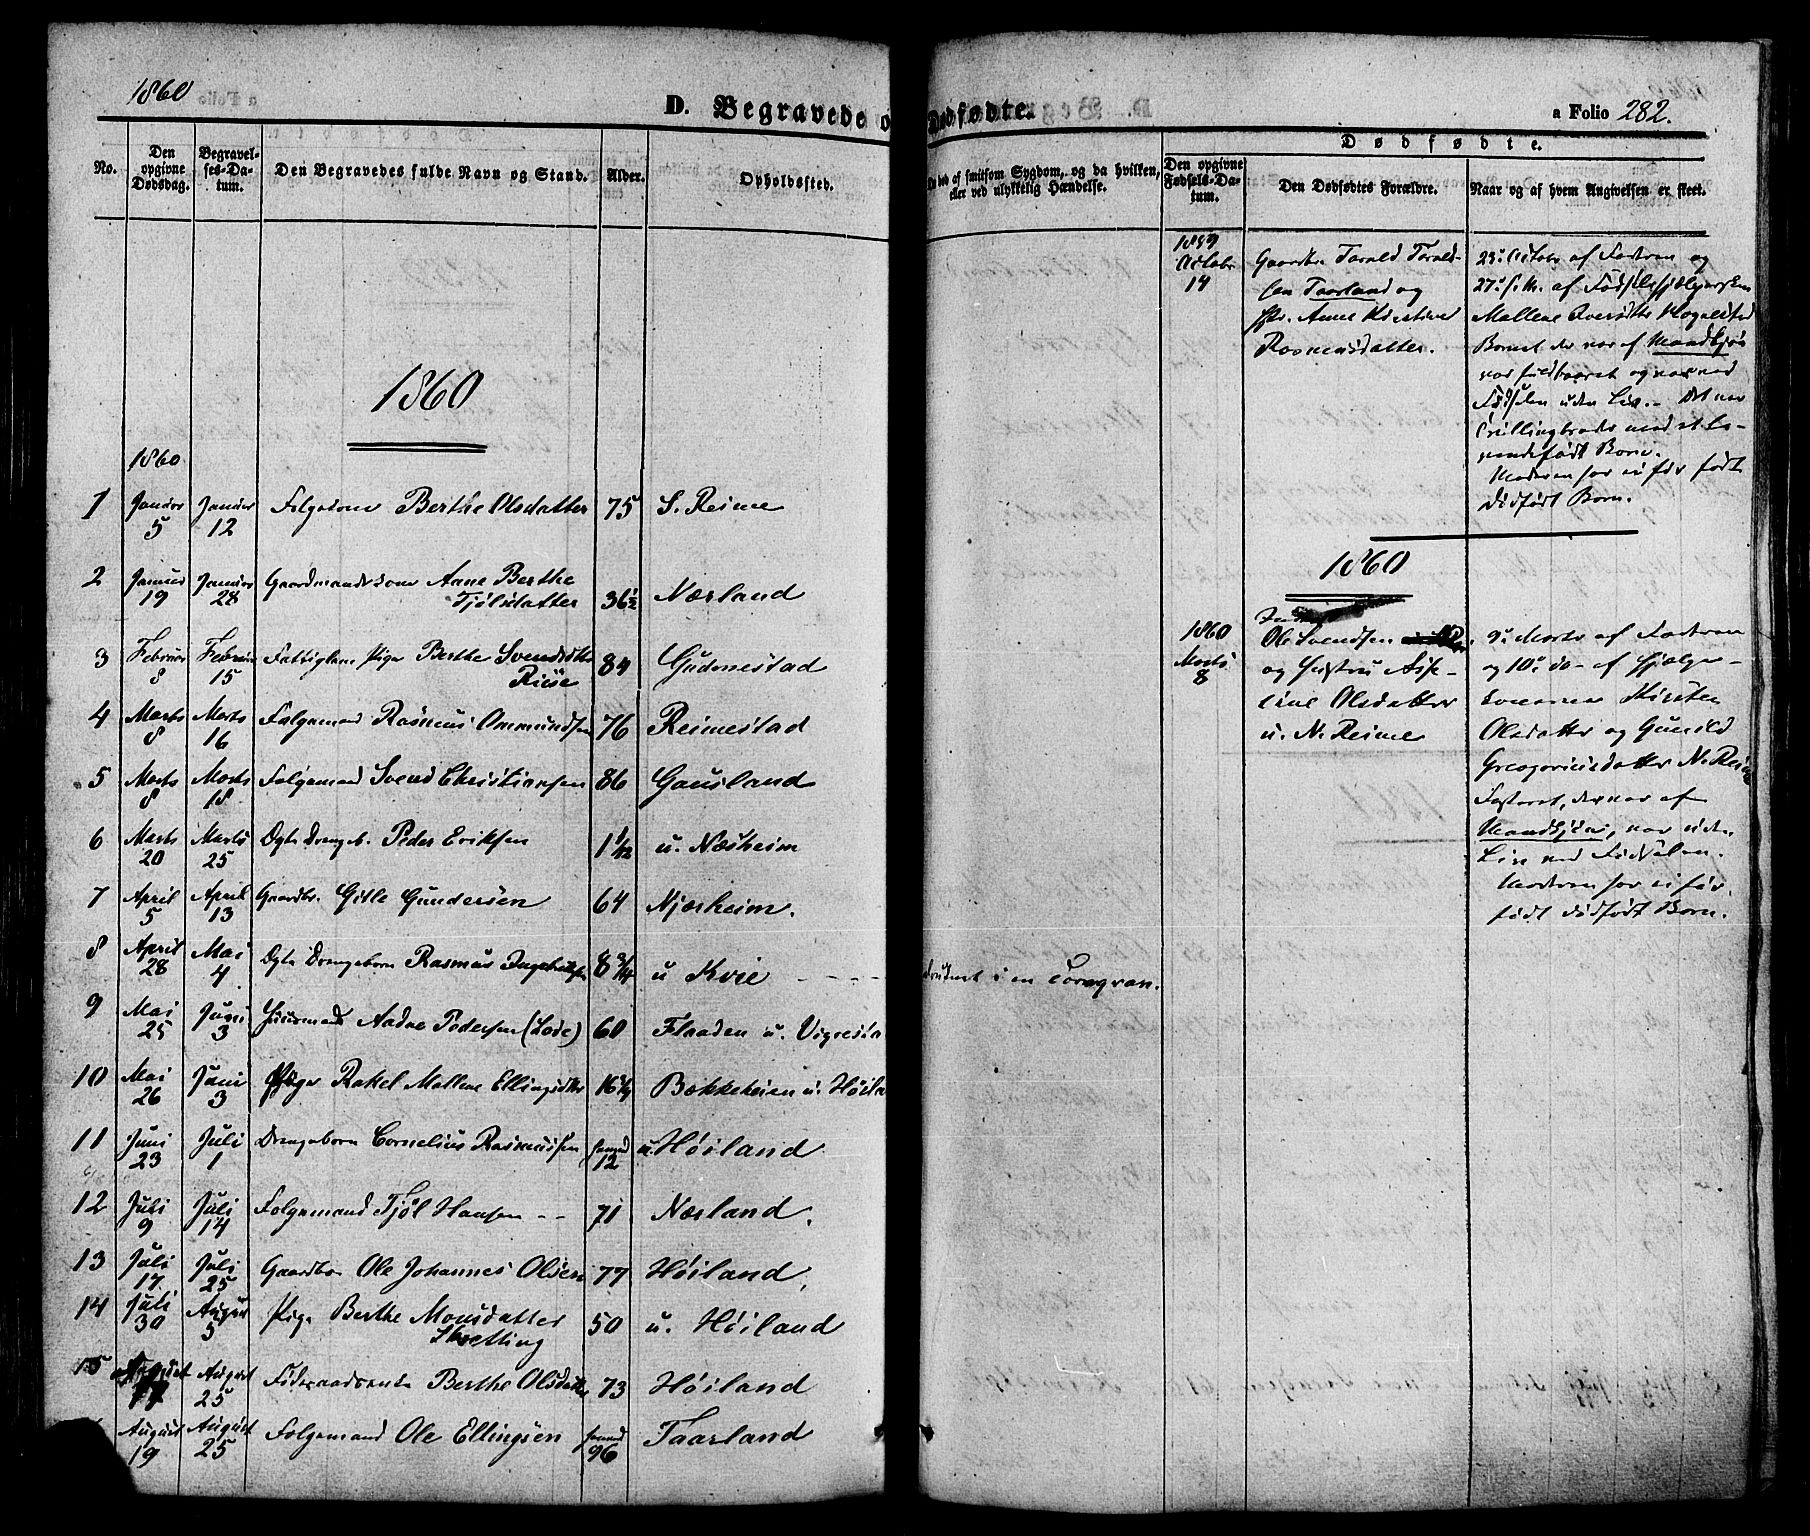 1860
D. Begravede o
Dødfødte.
a Folio 282.
No.
Den opgivne Dødsdag.
Begravel-ses-Da-tum.
Den Begravedes fulde Navn og Stand.
Alder.
Opholdssted.
død af smitsom Sygdom, og da hvilken,
eller ved ulykkelig Hændelse.
Dødfødte.
Den opgivne Fødsels-Da-tum.
Den Dødfødtes Forældre.
Naar og af hvem Angivelsen er skeet.
1860
1860
1 Januar 5 Januar 12 Berthe Olsdatter 75 S. Reime
2 Januar 19 Januar 28 Gaardmandskone Anne Berthe Tjølsdatter 36 1/2 Nærland
3 Februar 8 Februar 15 Fattiglem Pige Berthe Svendsdtr 84 Gudmestad
4 Marts 8 Marts 16 Folgemand Rasmus Ommundsen 76 Reimestad
5 Marts 8 Marts 18 Folgemand Svend Christiansen 86 Gausland
6 Marts 20 Marts 25 Ægte Drengeb. Peder Eriksen 1 1/12 u. Næsheim
7 April 5 April 13 Gaardbr. Gitle Gundersen 64 Njærheim.
8 April 28 Mai 4 Ægte Drengebarn Rasmus 8 3/4 u Kvie
9 Mai 25 Juni 3 Huusmand Aadne Pedersen (Lode) 60 Flaaden u. Vigrestad
10 Mai 26 Juni 3 Pige Rakel Mallene Ellingsdtr 16 Bækkeheien u. Høiland
11 Juni 23 Juli 1 Drengebarn Cornelius Rasmussen 12 u Høiland
12 Juli 9 Juli 14 Folgemand Tjøl Hansen 71 Nærland.
13 Juli 17 Juli 25 Gaardbr Ole Johannes Olsen 77 Høiland.
14 Juli 30 August 5 Pige Berthe Monsdatter Skretting 50 u. Høiland
15 August 17 August 25 Føderaadsenke Berthe Olsdatter 73 Høiland
August 19 August 25 Folgemand Ole Ellingsen 96 Taarland
i en Torvgrav.
1859
October
14
Gaardbr. Tarald Tarald-
sen Taarland og
Hstr. Anne Kirstine
Rasmusdatter.
23de October af Faderen og
27de s. M. af Fødselshjelpersken
Mallene
Barnet der var af Mandkjøn
var fuldbaaret og var ved
Fødselen uden Liv. - Det var
med et le-
vendefødt Barn.
Moderen har ei før født
dødfødt Barn.
1860
1860
Marts
8
Ole Svendsen
og Hustru
Olsdatter
u. N. Reime
9de Marts af Faderen
og 10de do- af Hjelpe-
konerne Kirsten
Olsdatter og Gunild
Gregoriusdatter N. Reime
Fosteret, der var af
Mandkjøn, var uden
Liv ved Fødselen.
Moderen har ei før
født dødfødt Barn.